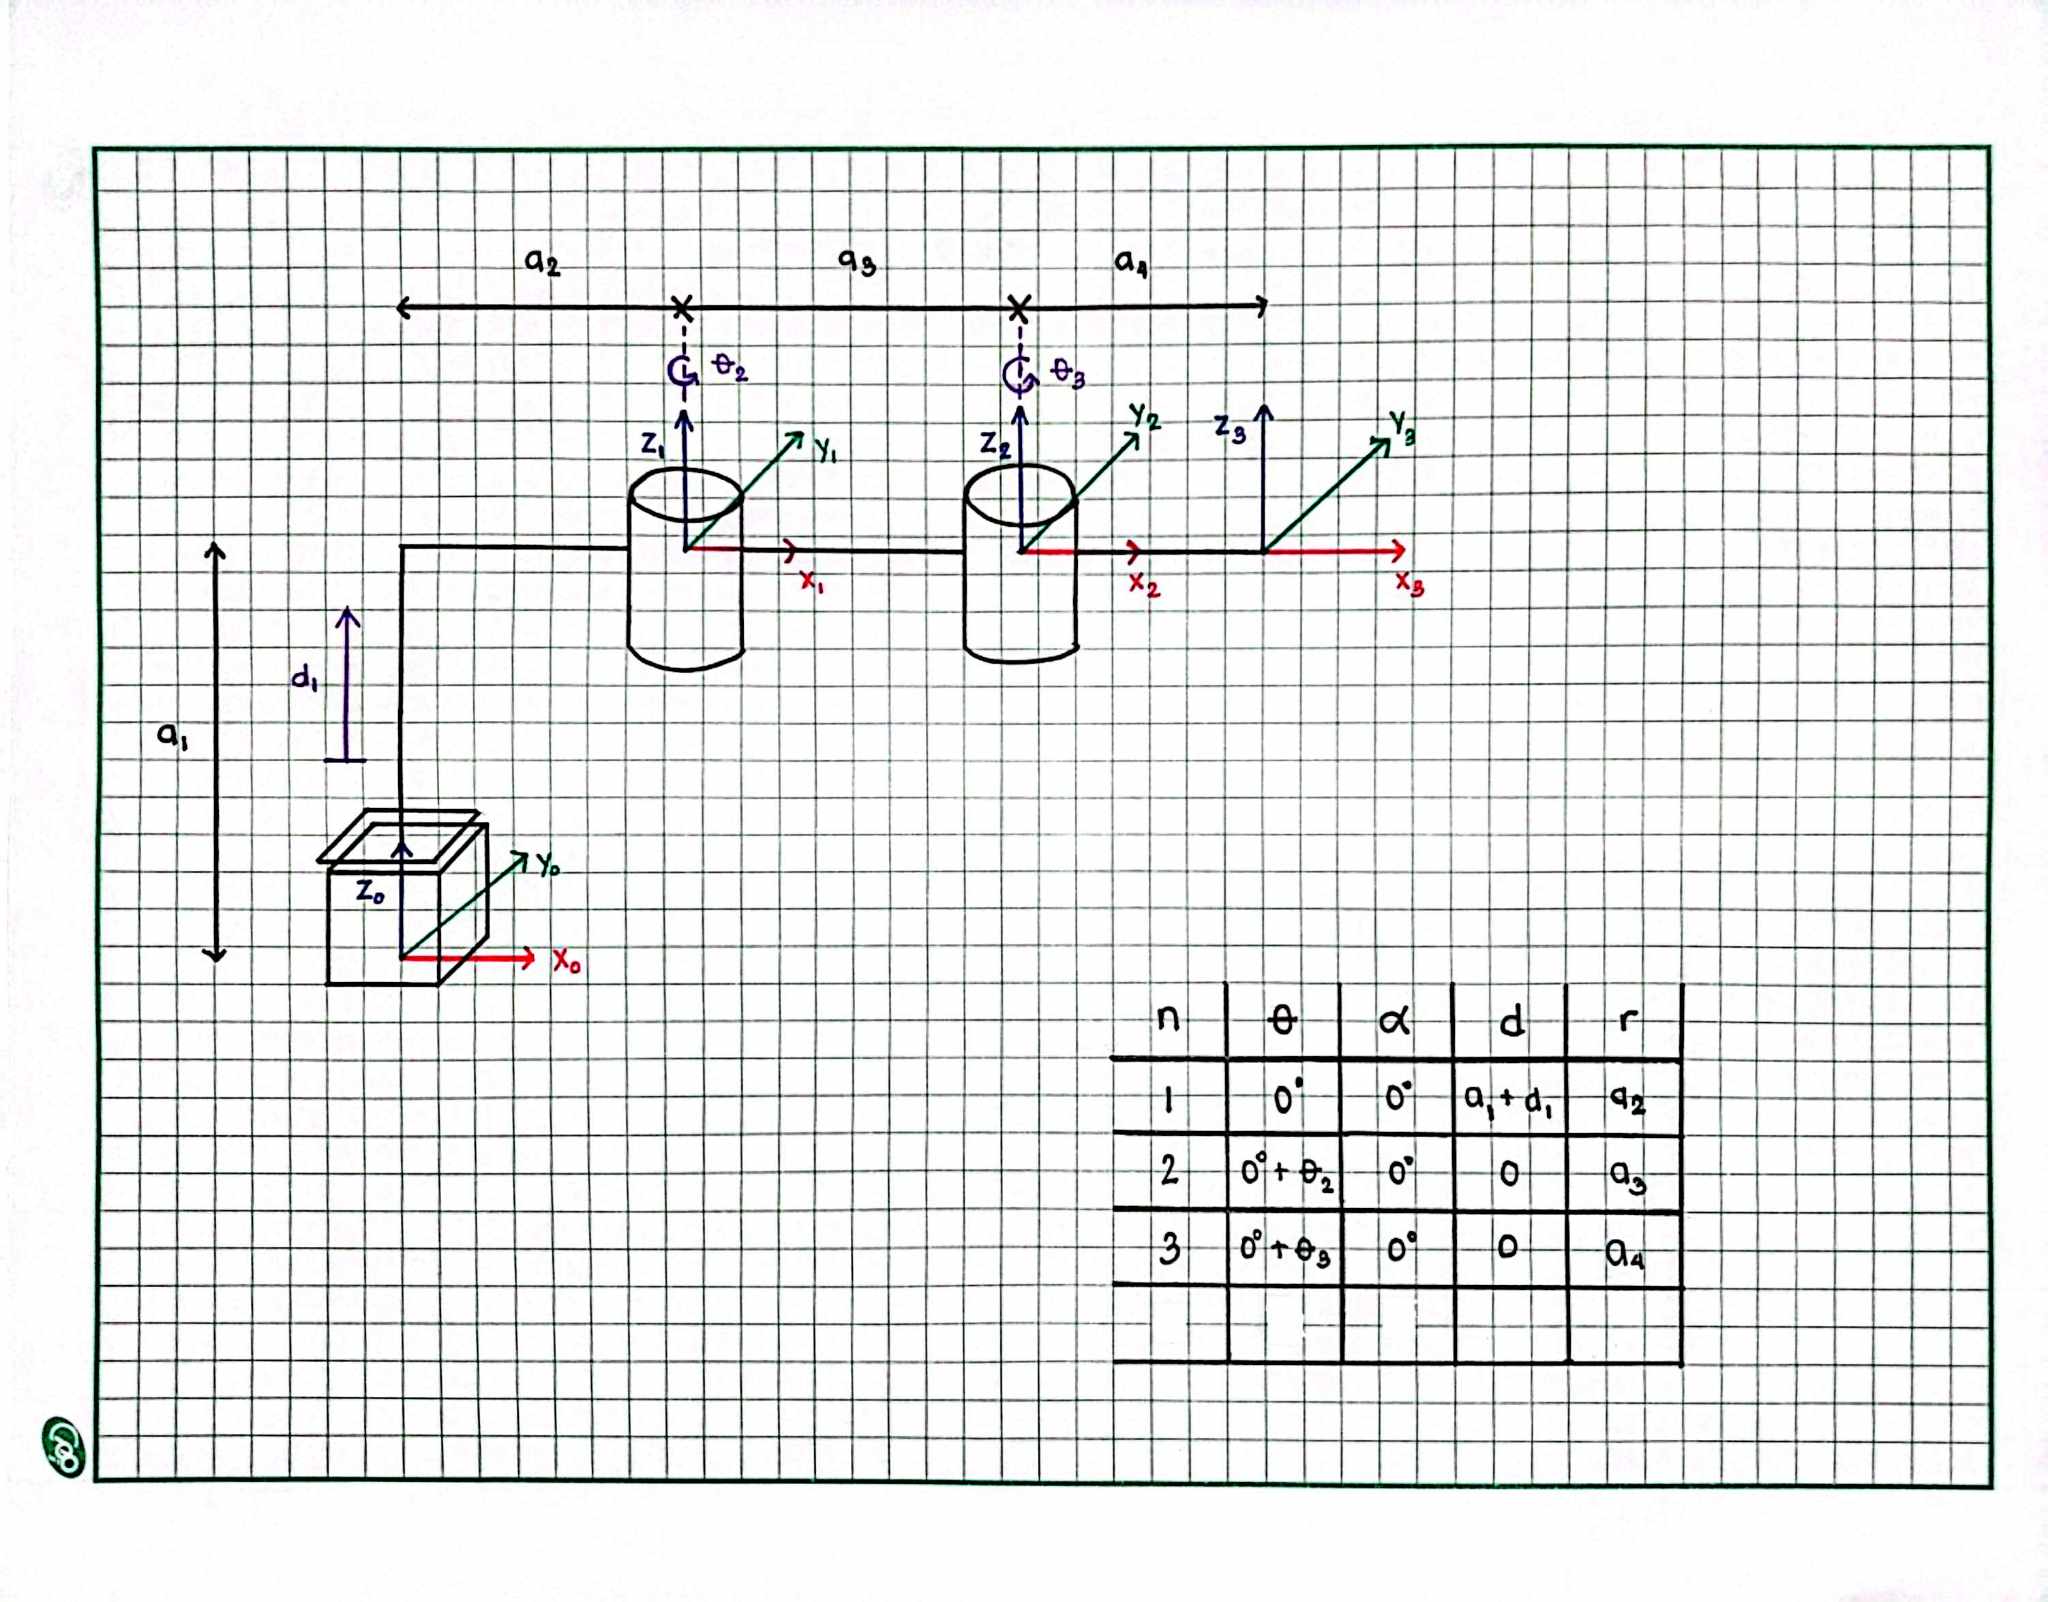 a₂ a₃ a₄
θ₂ θ₃
Z₁ Y₁ Z₂ Y₂ Z₃ Y₃
X₁ X₂ X₃
d₁
a₁
Z₀ Y₀
X₀
n θ α d r
1 0° 0° a₁ + d₁ a₂
2 0° + θ₂ 0° 0 a₃
3 0° + θ₃ 0° 0 a₄